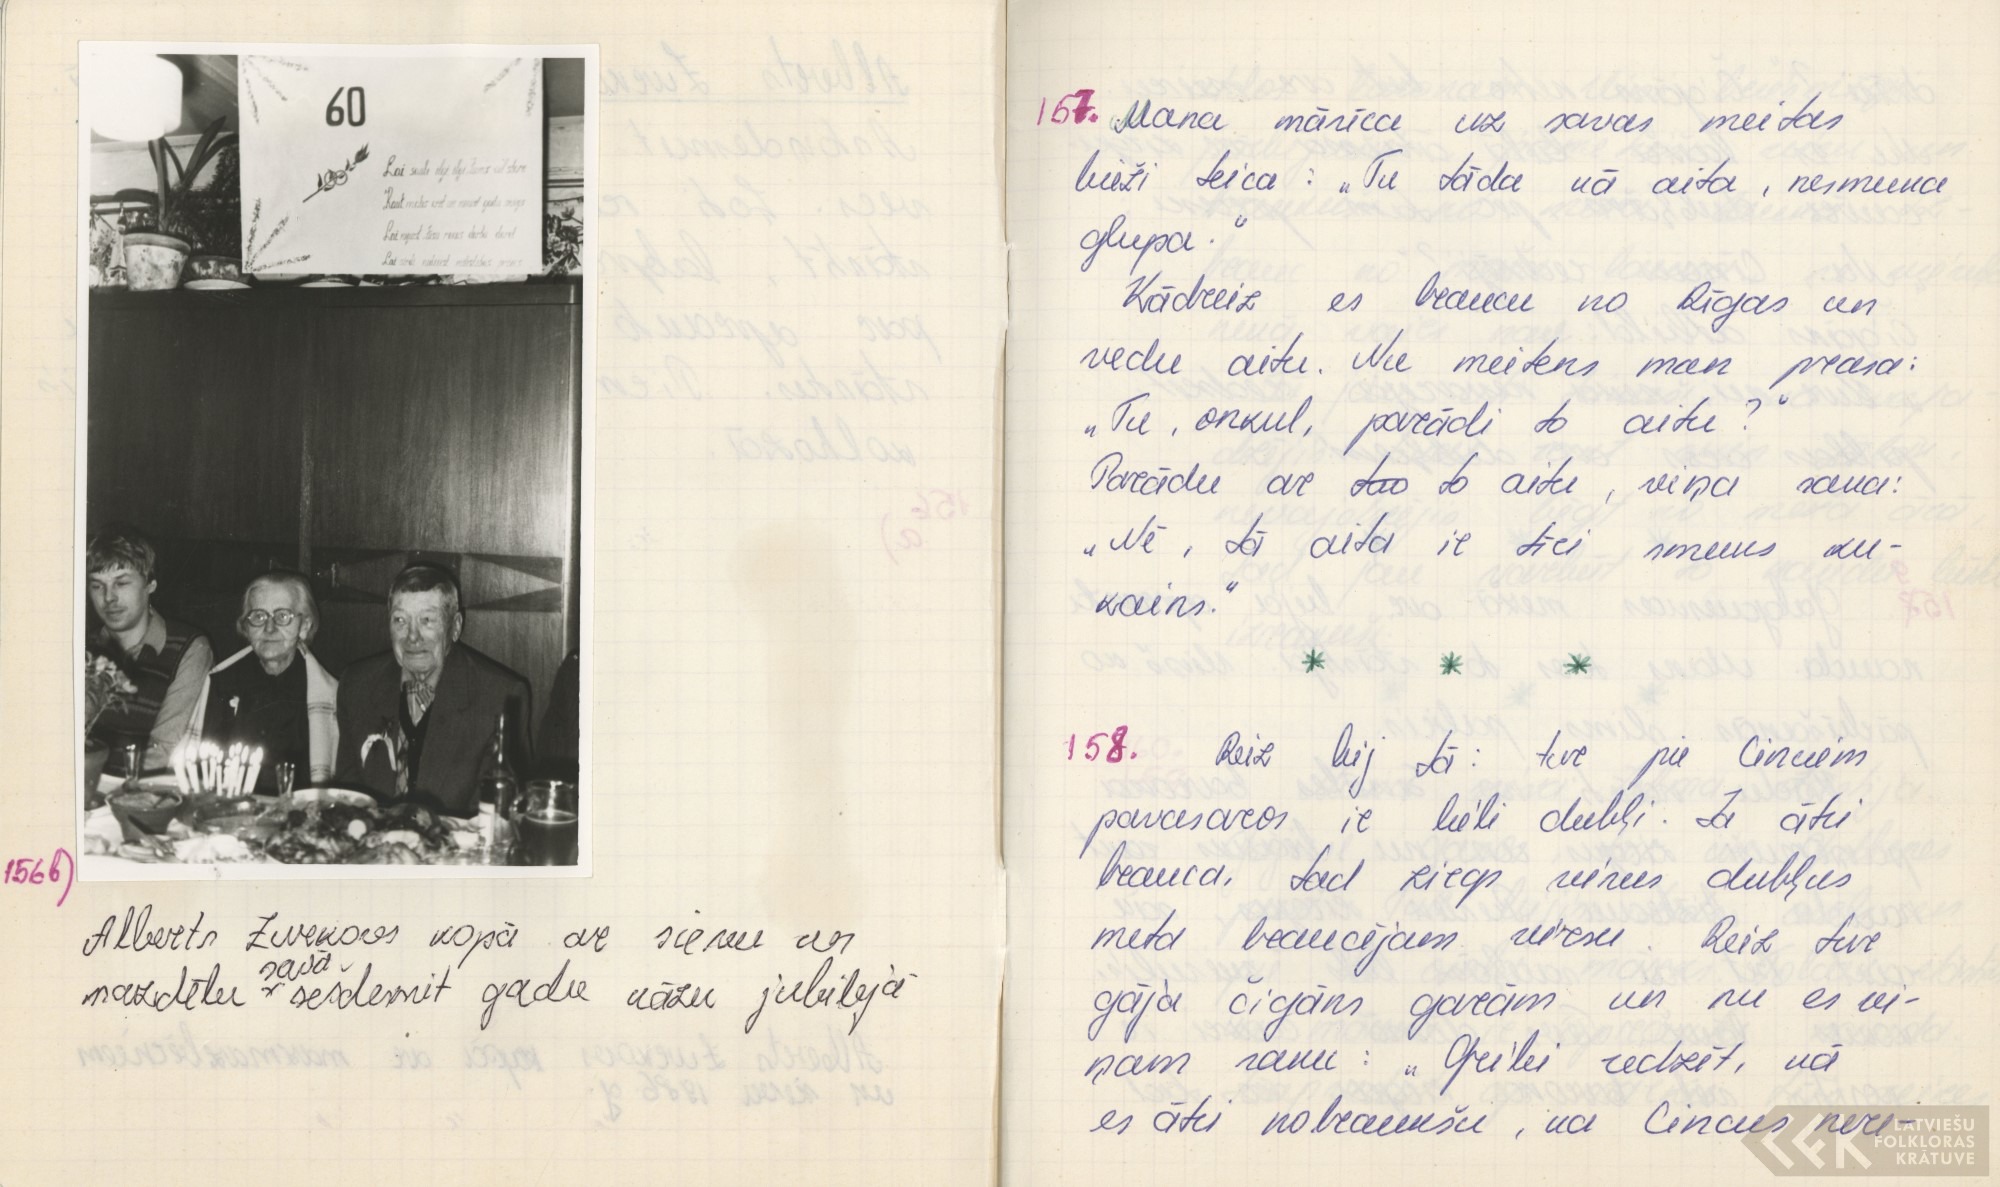 60
Lai
Lai
Lai
156b)
Alberts Zvekovs kopā ar sievu un
mazdēlu savā sešdesmit gadu kāzu jubilejā
157. Mana māsīca uz savas meitas
bieži teica: „Tu tāda kā aita, nesmuka
glupa."
Kādreiz es braucu no Rīgas un
vedu aitu. Nu meitens man prasa:
„Tu, onkul, parādi to aitu?"
Parādu ar tao to aitu, viņa saka:
„Nē, tā aita ir tīri smuks ku-
kains."
* * *
158. Reiz bij tā: tur pie Cinciem
pavasaros ir lieli dubļi. Ja ātri
brauca, tad zirgs visus dubļus
meta braucējam virsū. Reiz tur
gāja čigāns garām un nu es vi-
ņam saku: „Gribi redzēt, kā
es ātri nobraukšu, ka Cincus
LATVIEŠU
FOLKLORAS
KRĀTUVE